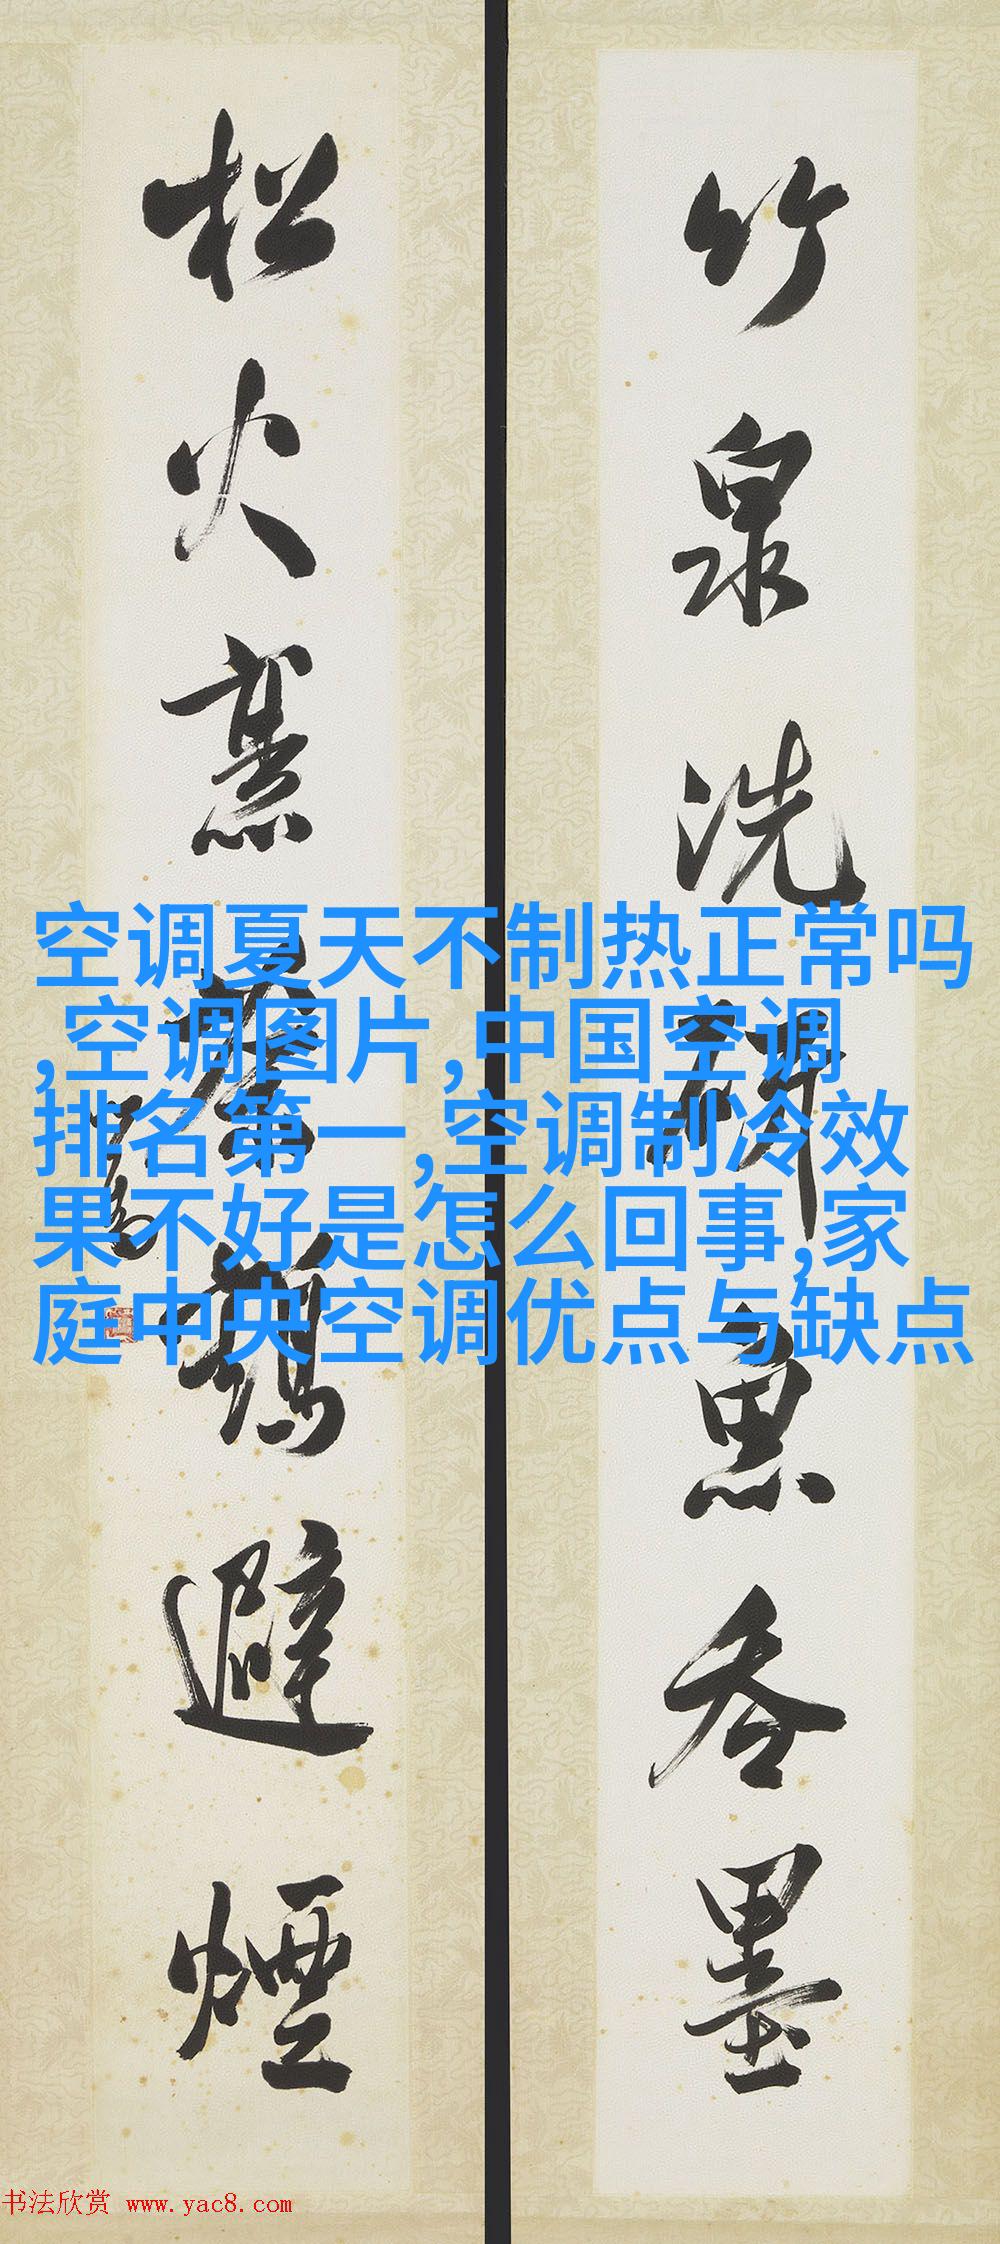 竹泉洗研魚吞墨
松火烹茶鶴避煙
空调夏天不制热正常吗
,空调图片,中国空调
排名第一,空调制冷效
果不好是怎么回事,家
庭中央空调优点与缺点
书法欣赏 www.yac8.com